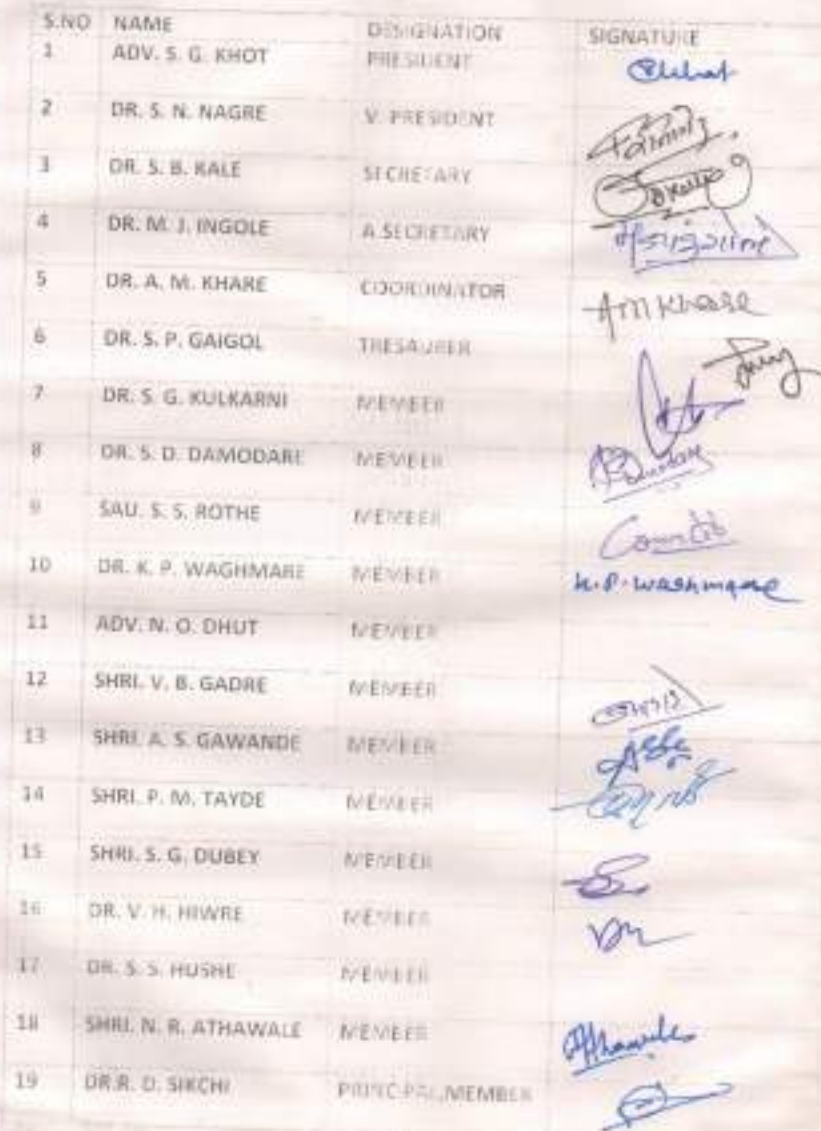 S.NO NAME DESIGNATION SIGNATURE
1 ADV. S. G. KHOT PRESIDENT
2 DR. S. N. NAGRE V. PRESIDENT
3 DR. S. B. KALE SECRETARY
4 DR. M. J. INGOLE A.SECRETARY
5 DR. A. M. KHARE COORDINATOR AmKhare
6 DR. S. P. GAIGOL THESAURER
7 DR. S. G. KULKARNI MEMBER
8 DR. S. D. DAMODARE MEMBER
9 SAU. S. S. ROTHE MEMBER
10 DR. K. P. WAGHMARE MEMBER K.P.Waghmare
11 ADV. N. O. DHUT MEMBER
12 SHRI. V. B. GADRE MEMBER
13 SHRI. A. S. GAWANDE MEMBER
14 SHRI. P. M. TAYDE MEMBER
15 SHRI. S. G. DUBEY MEMBER
16 DR. V. H. HIWRE MEMBER
17 DR. S. S. HUSHE MEMBER
18 SHRI. N. R. ATHAWALE MEMBER
19 DR.R. D. SIKCHI PRINCIPAL,MEMBER